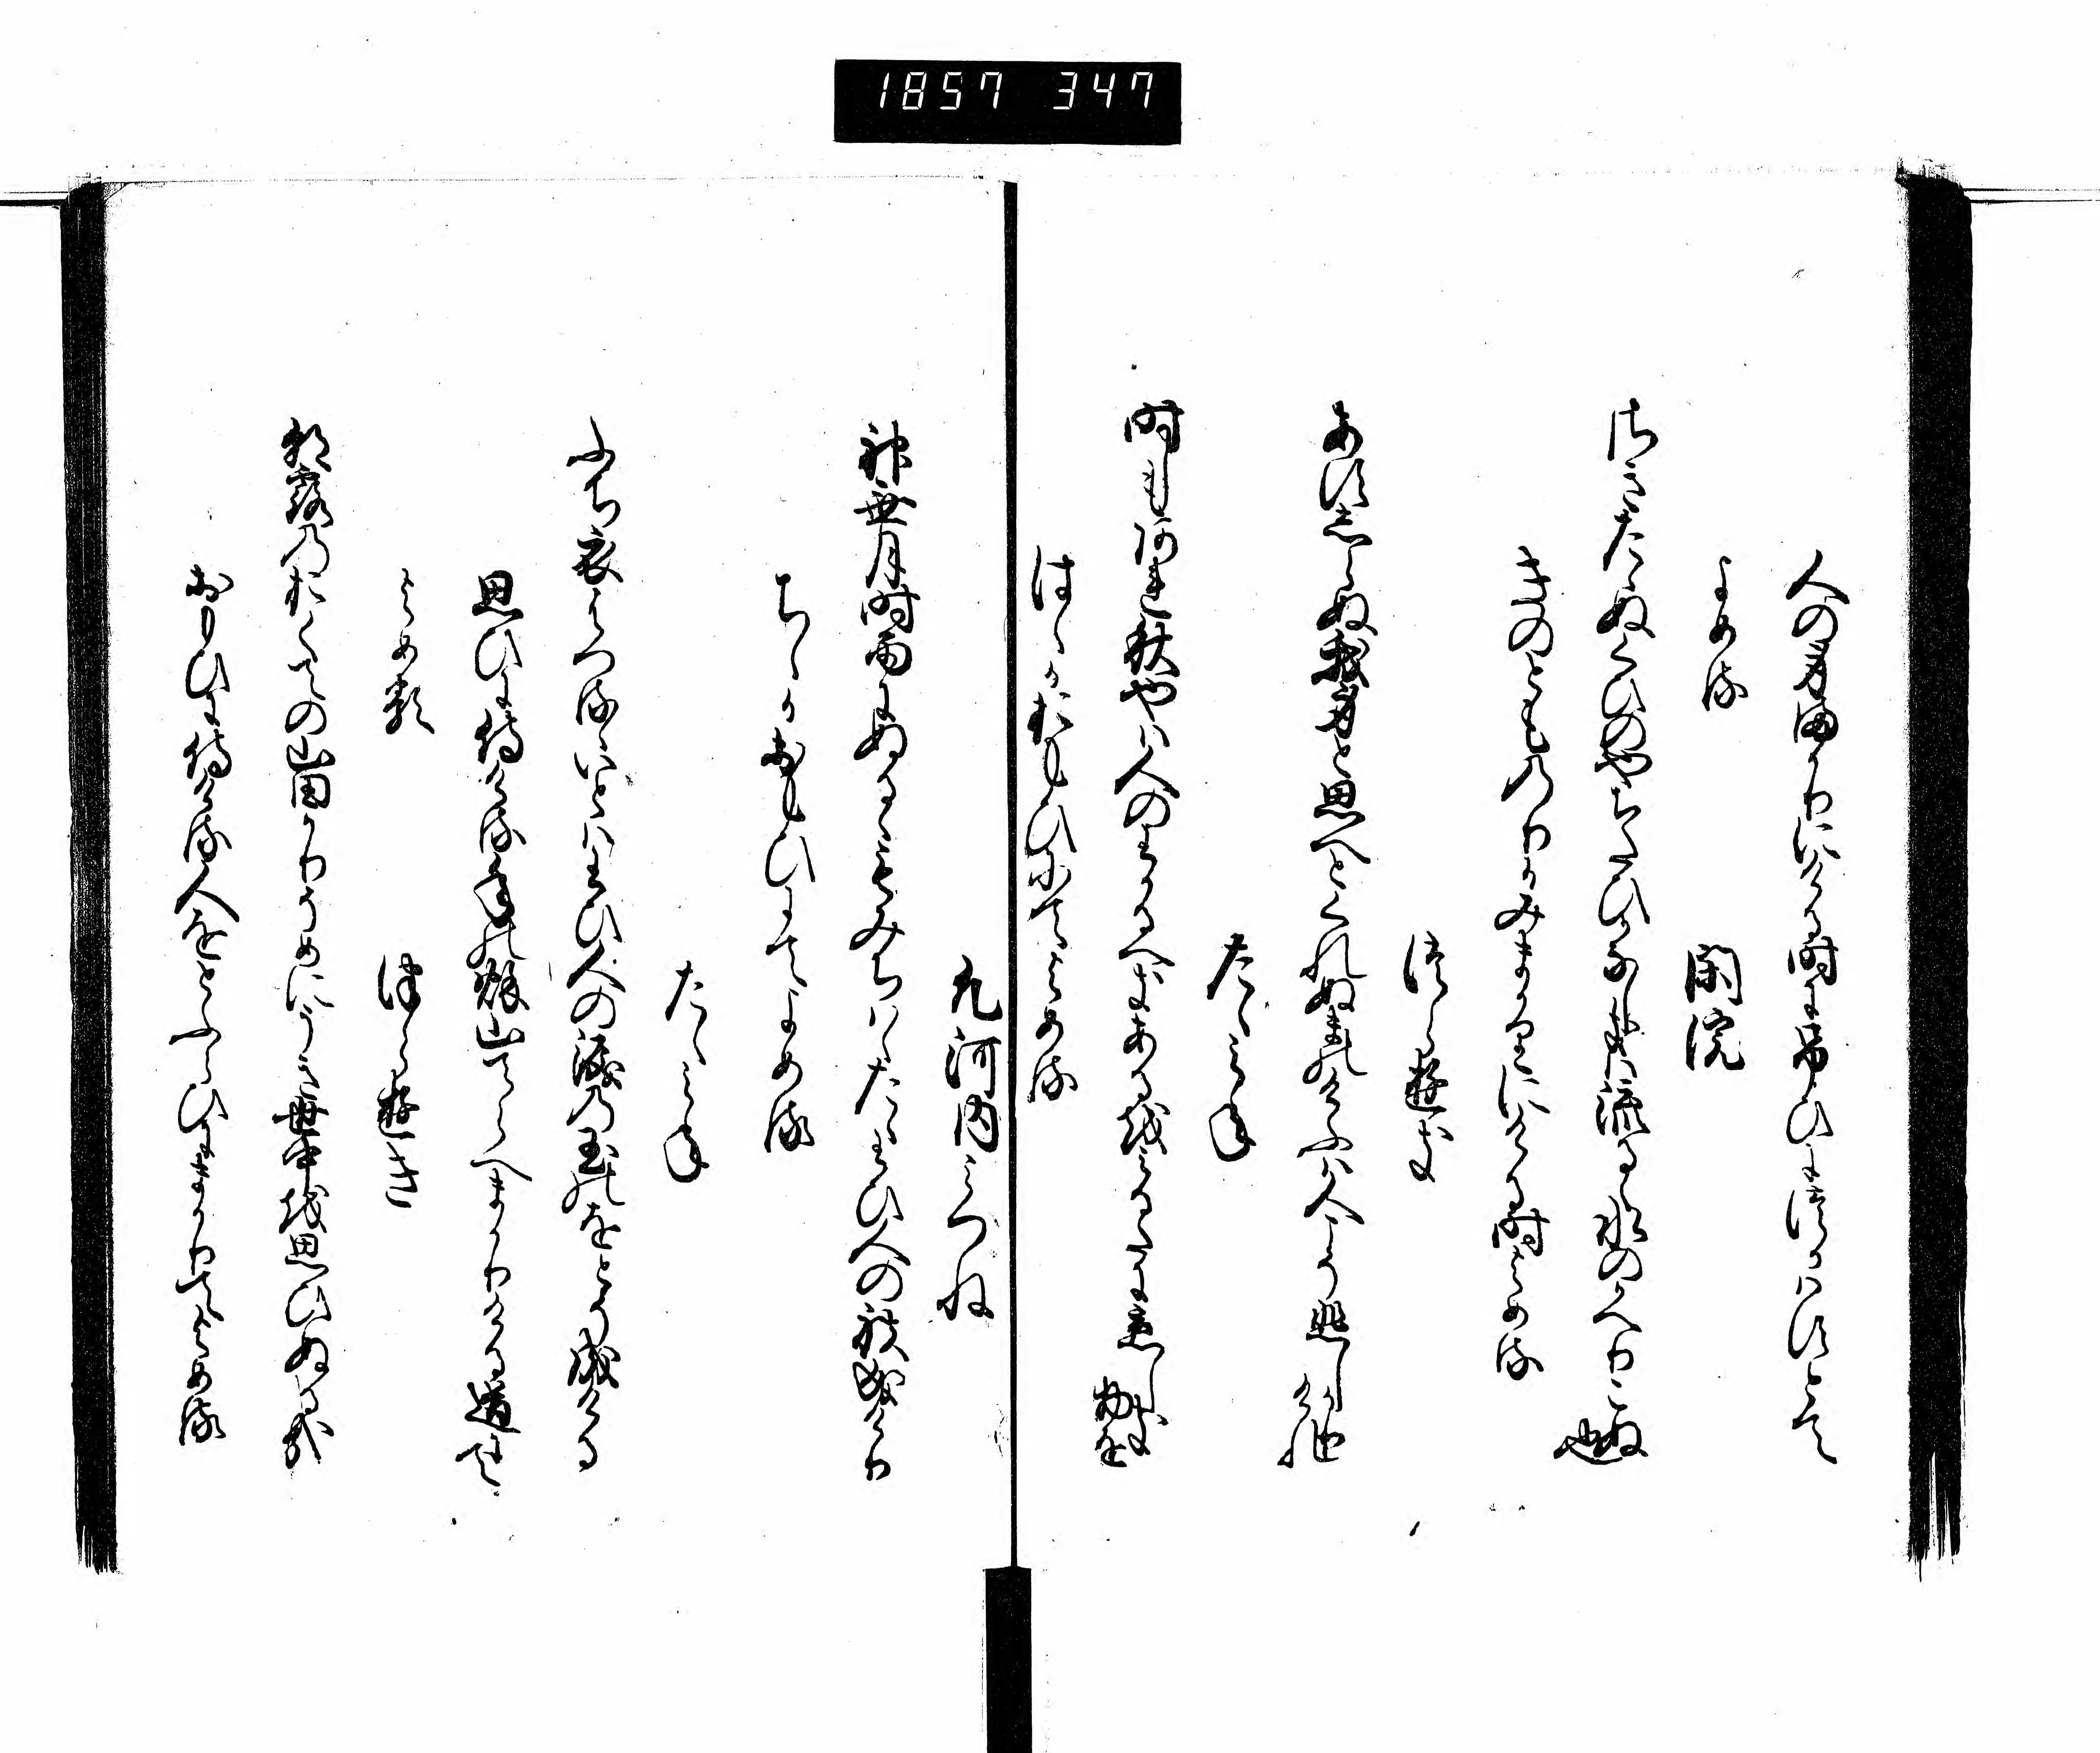 1857 347
人の身まかりにける時に弔ひにつかはすとて
よめる
閑院
さきたゝぬくひのやちたひかなしきは流るゝ水のかへりこぬ也
きのとものりかみまかりにける時よめる
つらゆき
あすしらぬ我身と思へとくれぬまのけふは人こそ悲しかりけれ
たゝみね
時しもあれ秋やは人のわかるへきあるを見るたに恋しき物を
はゝかおもひにてよめる
凡河内みつね
神無月時雨にぬるゝもみちはゝたゝわひ人の袂成けり
ちゝかおもひにてよめる
たゝみね
ふち衣はつるゝいとはわひ人の涙の玉のをとそ成ける
思ひに侍ける年の秋山てらへまかりける道にて
よめる
つらゆき
朝露のおくての山田かりそめにうき世中を思ひぬる哉
おもひに侍ける人をとふらひにまかりてよめる